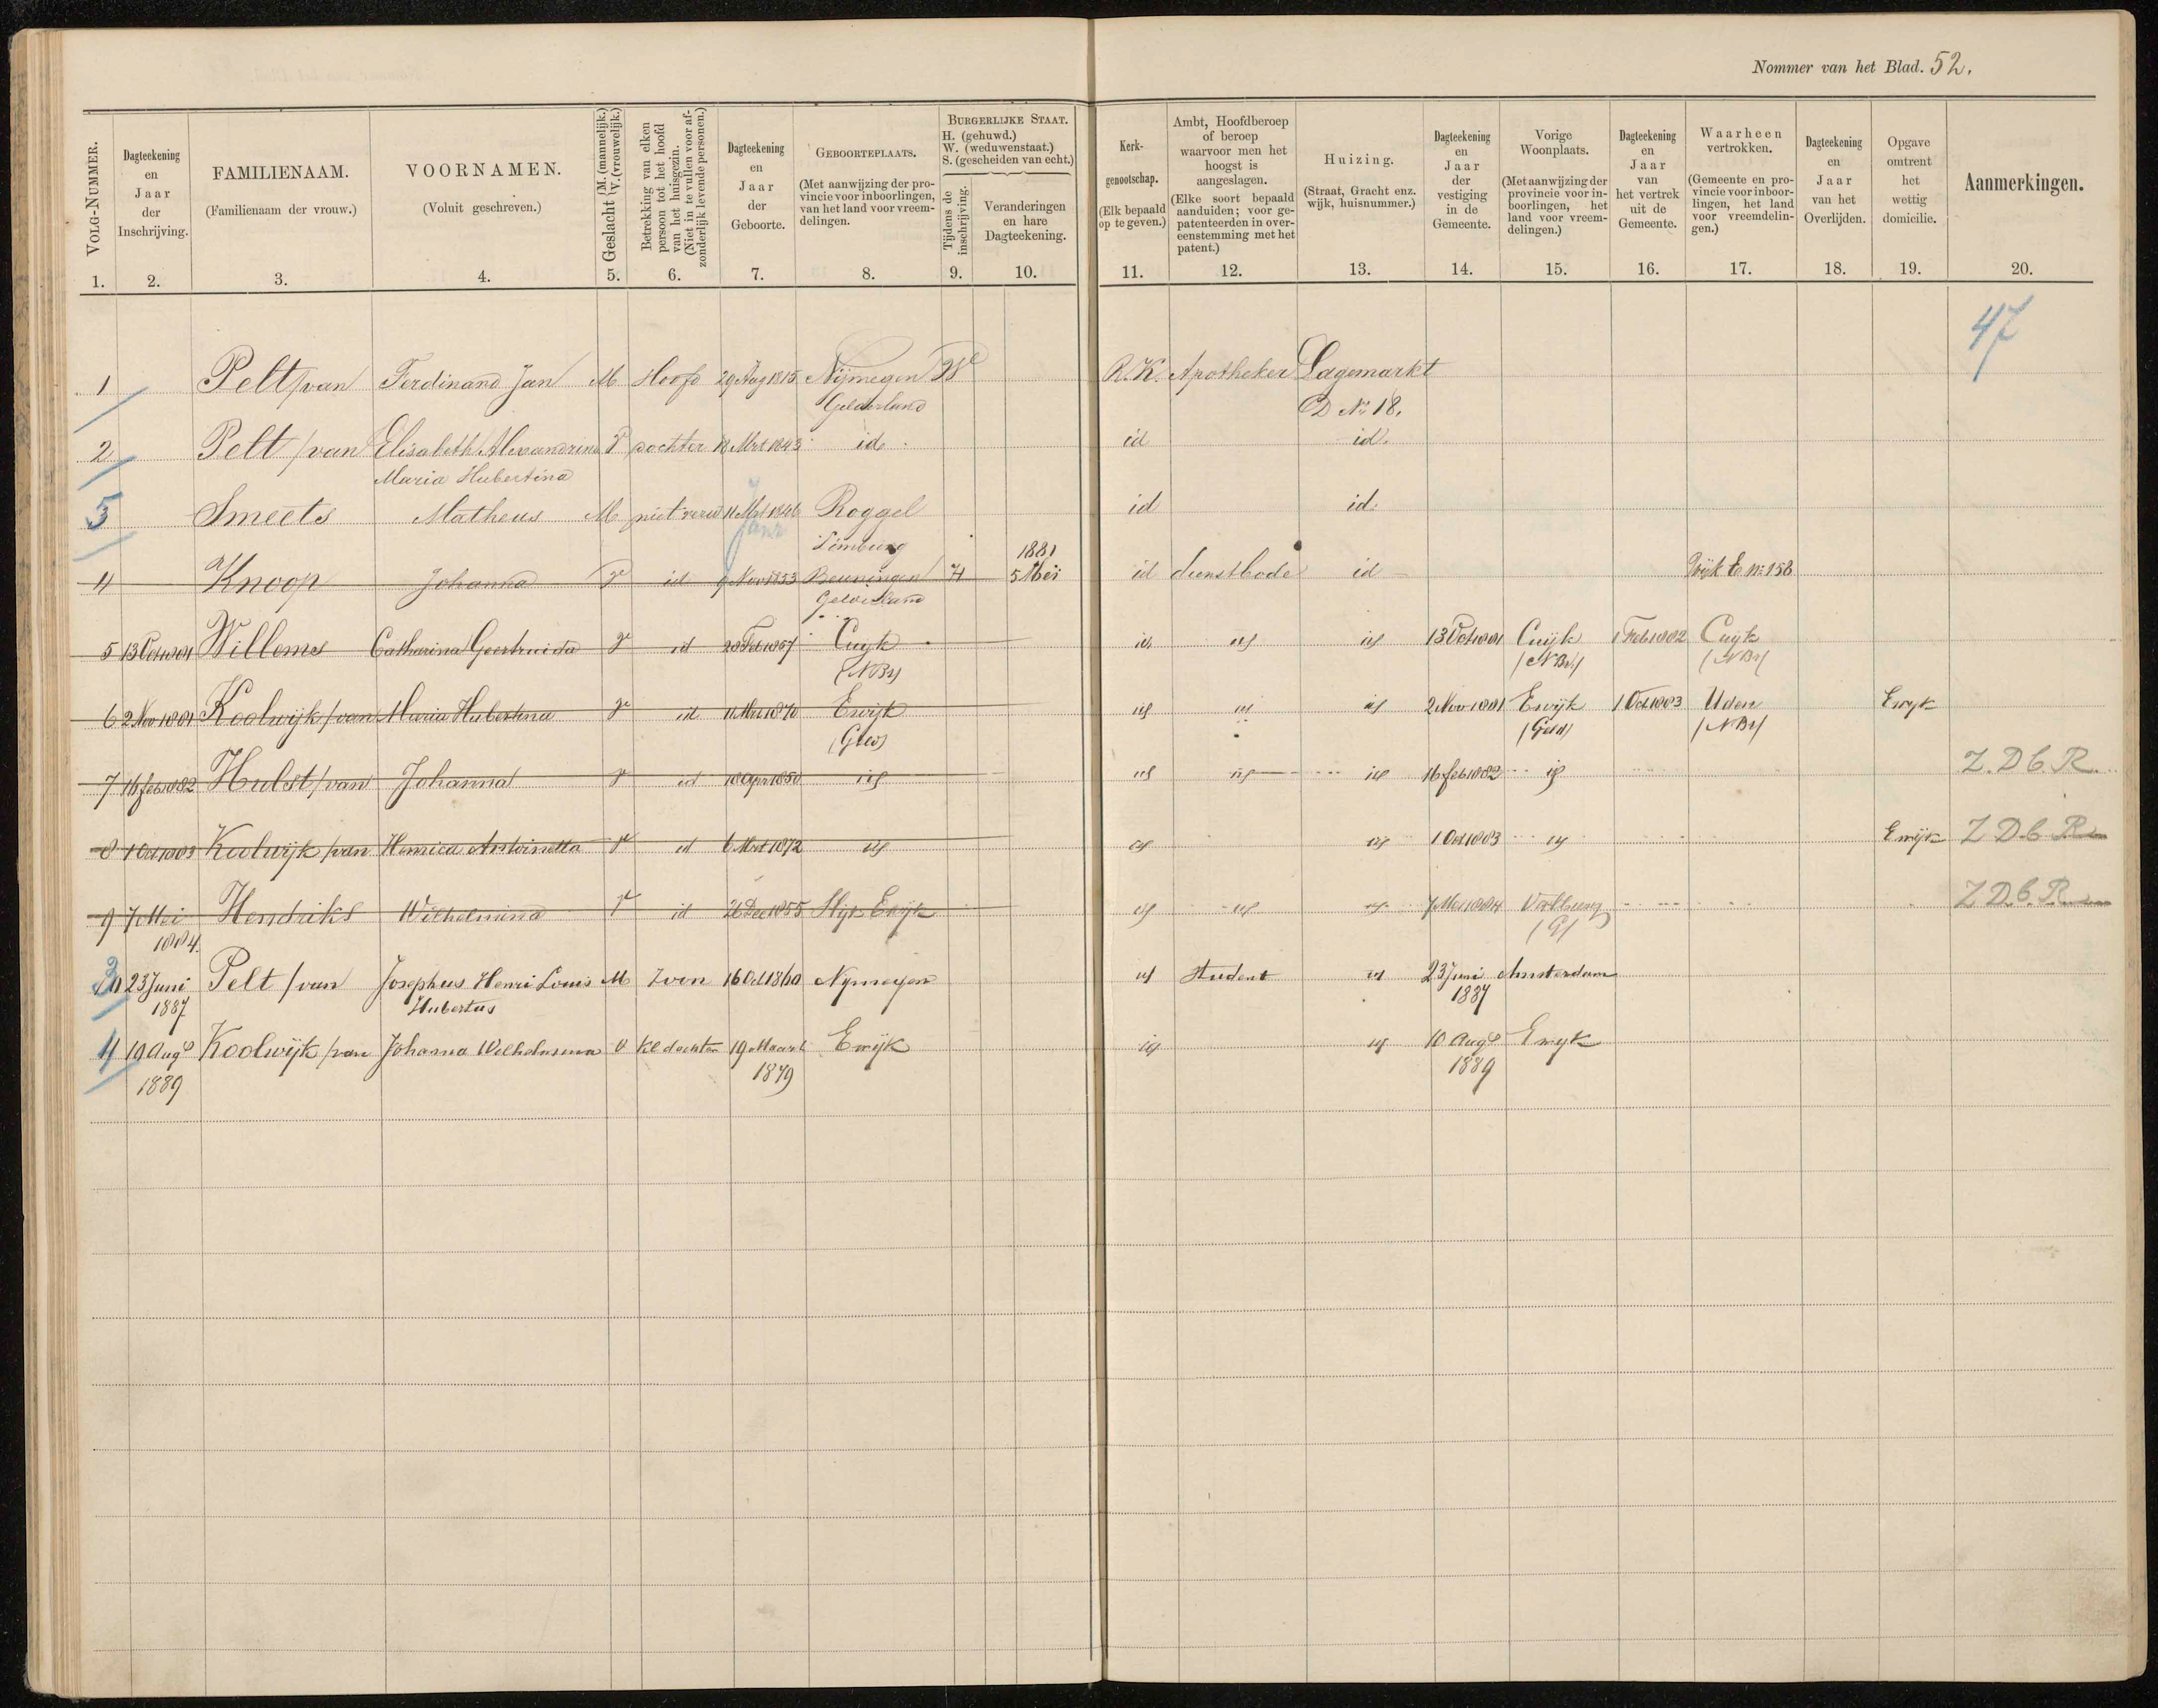 Nommer van het Blad. 52.
VOLG-NUMMER. 1.
Dagteekening en Jaar der Inschrijving. 2.
FAMILIENAAM. (Familienaam der vrouw.) 3.
VOORNAMEN. (Voluit geschreven.) 4.
Geslacht M. (mannelijk.) V. (vrouwelijk.) 5.
Betrekking van elken persoon tot het hoofd van het huisgezin. (Niet in te vullen voor afzonderlijk levende personen.) 6.
Dagteekening en Jaar der Geboorte. 7.
GEBOORTEPLAATS. (Met aanwijzing der provincie voor inboorlingen, van het land voor vreemdelingen. 8.
BURGERLIJKE STAAT. H. (gehuwd.) W. (weduwenstaat.) S. (gescheiden van echt.)
Tijdens de inschrijving. 9.
Veranderingen en hare Dagteekening. 10.
Kerkgenootschap. (Elk bepaald op te geven.) 11.
Ambt, Hoofdberoep of beroep waarvoor men het hoogst is aangeslagen. (Elke soort bepaald aanduiden; voor gepatenteerden in overeenstemming met het patent.) 12.
Huizing. (Straat, Gracht enz. wijk, huisnummer.) 13.
Dagteekening en Jaar der vestiging in de Gemeente. 14.
Vorige Woonplaats. (Met aanwijzing der provincie voor inboorlingen, het land voor vreemdelingen.) 15.
Dagteekening en Jaar van het vertrek uit de Gemeente. 16.
Waarheen vertrokken. (Gemeente en provincie voor inboorlingen, het land voor vreemdelingen.) 17.
Dagteekening en Jaar van het Overlijden. 18.
Opgave omtrent het wettig domicilie. 19.
Aanmerkingen. 20.
47
1 Pelt /van Ferdinand Jan M Hoofd 29 Aug 1815 Nijmegen W R.K. Apotheker Lagemarkt
Gelderland D No 18.
2 Pelt /van Elisabeth Alexandrina V dochter 18 Mrt 1843 id. id id.
Maria Hubertina
3 Smeets Matheus M niet verw 11 Mrt 1846 Roggel id id.
Janr Limburg
1881
4 Knoop Johanna V id 9 Nov 1853 Beuningen H 5 Mei id dienstbode id Wijk E no 158
Gelderland
5 13 Oct 1881 Willems Catharina Geertruida V id 28 Feb 1857 Cuyk id id id 13 Oct 1881 Cuijk 1 Feb 1882 Cuyk
(NBr) (NBr) (NBr)
6 2 Nov 1881 Koolwijk /van Maria Hubertina V id 11 Mrt 1870 Ewijk id id id 2 Nov 1881 Ewijk 1 Oct 1883 Uden Ewyk
(Geld) (Geld) (NBr)
7 16 feb 1882 Hulst /van Johanna V id 18 Apr 1850 id id id id 16 feb 1882 id Z. D b. R.
8 1 Oct 1883 Koolwijk /van Henrica Antoinetta V id 6 Mrt 1872 id id id 1 Oct 1883 id Ewijk Z D. b. R
9 7 Mei Hendriks Wilhelmina V id 26 Dec 1855 Slijk Ewijk id id id 7 Mei 1884 Valburg Z D. b. R
1884. (G)
10 23 Juni Pelt /van Josephus Henri Louis M Zoon 16 Oct 1860 Nijmegen id Student id 23 Juni Amsterdam
1887 Hubertus 1887
4 19 Augs Koolwijk /van Johanna Wilhelmina V kl dochter 19 Maart Ewijk id id 10 Augs Ewyk
1889 1879 1889